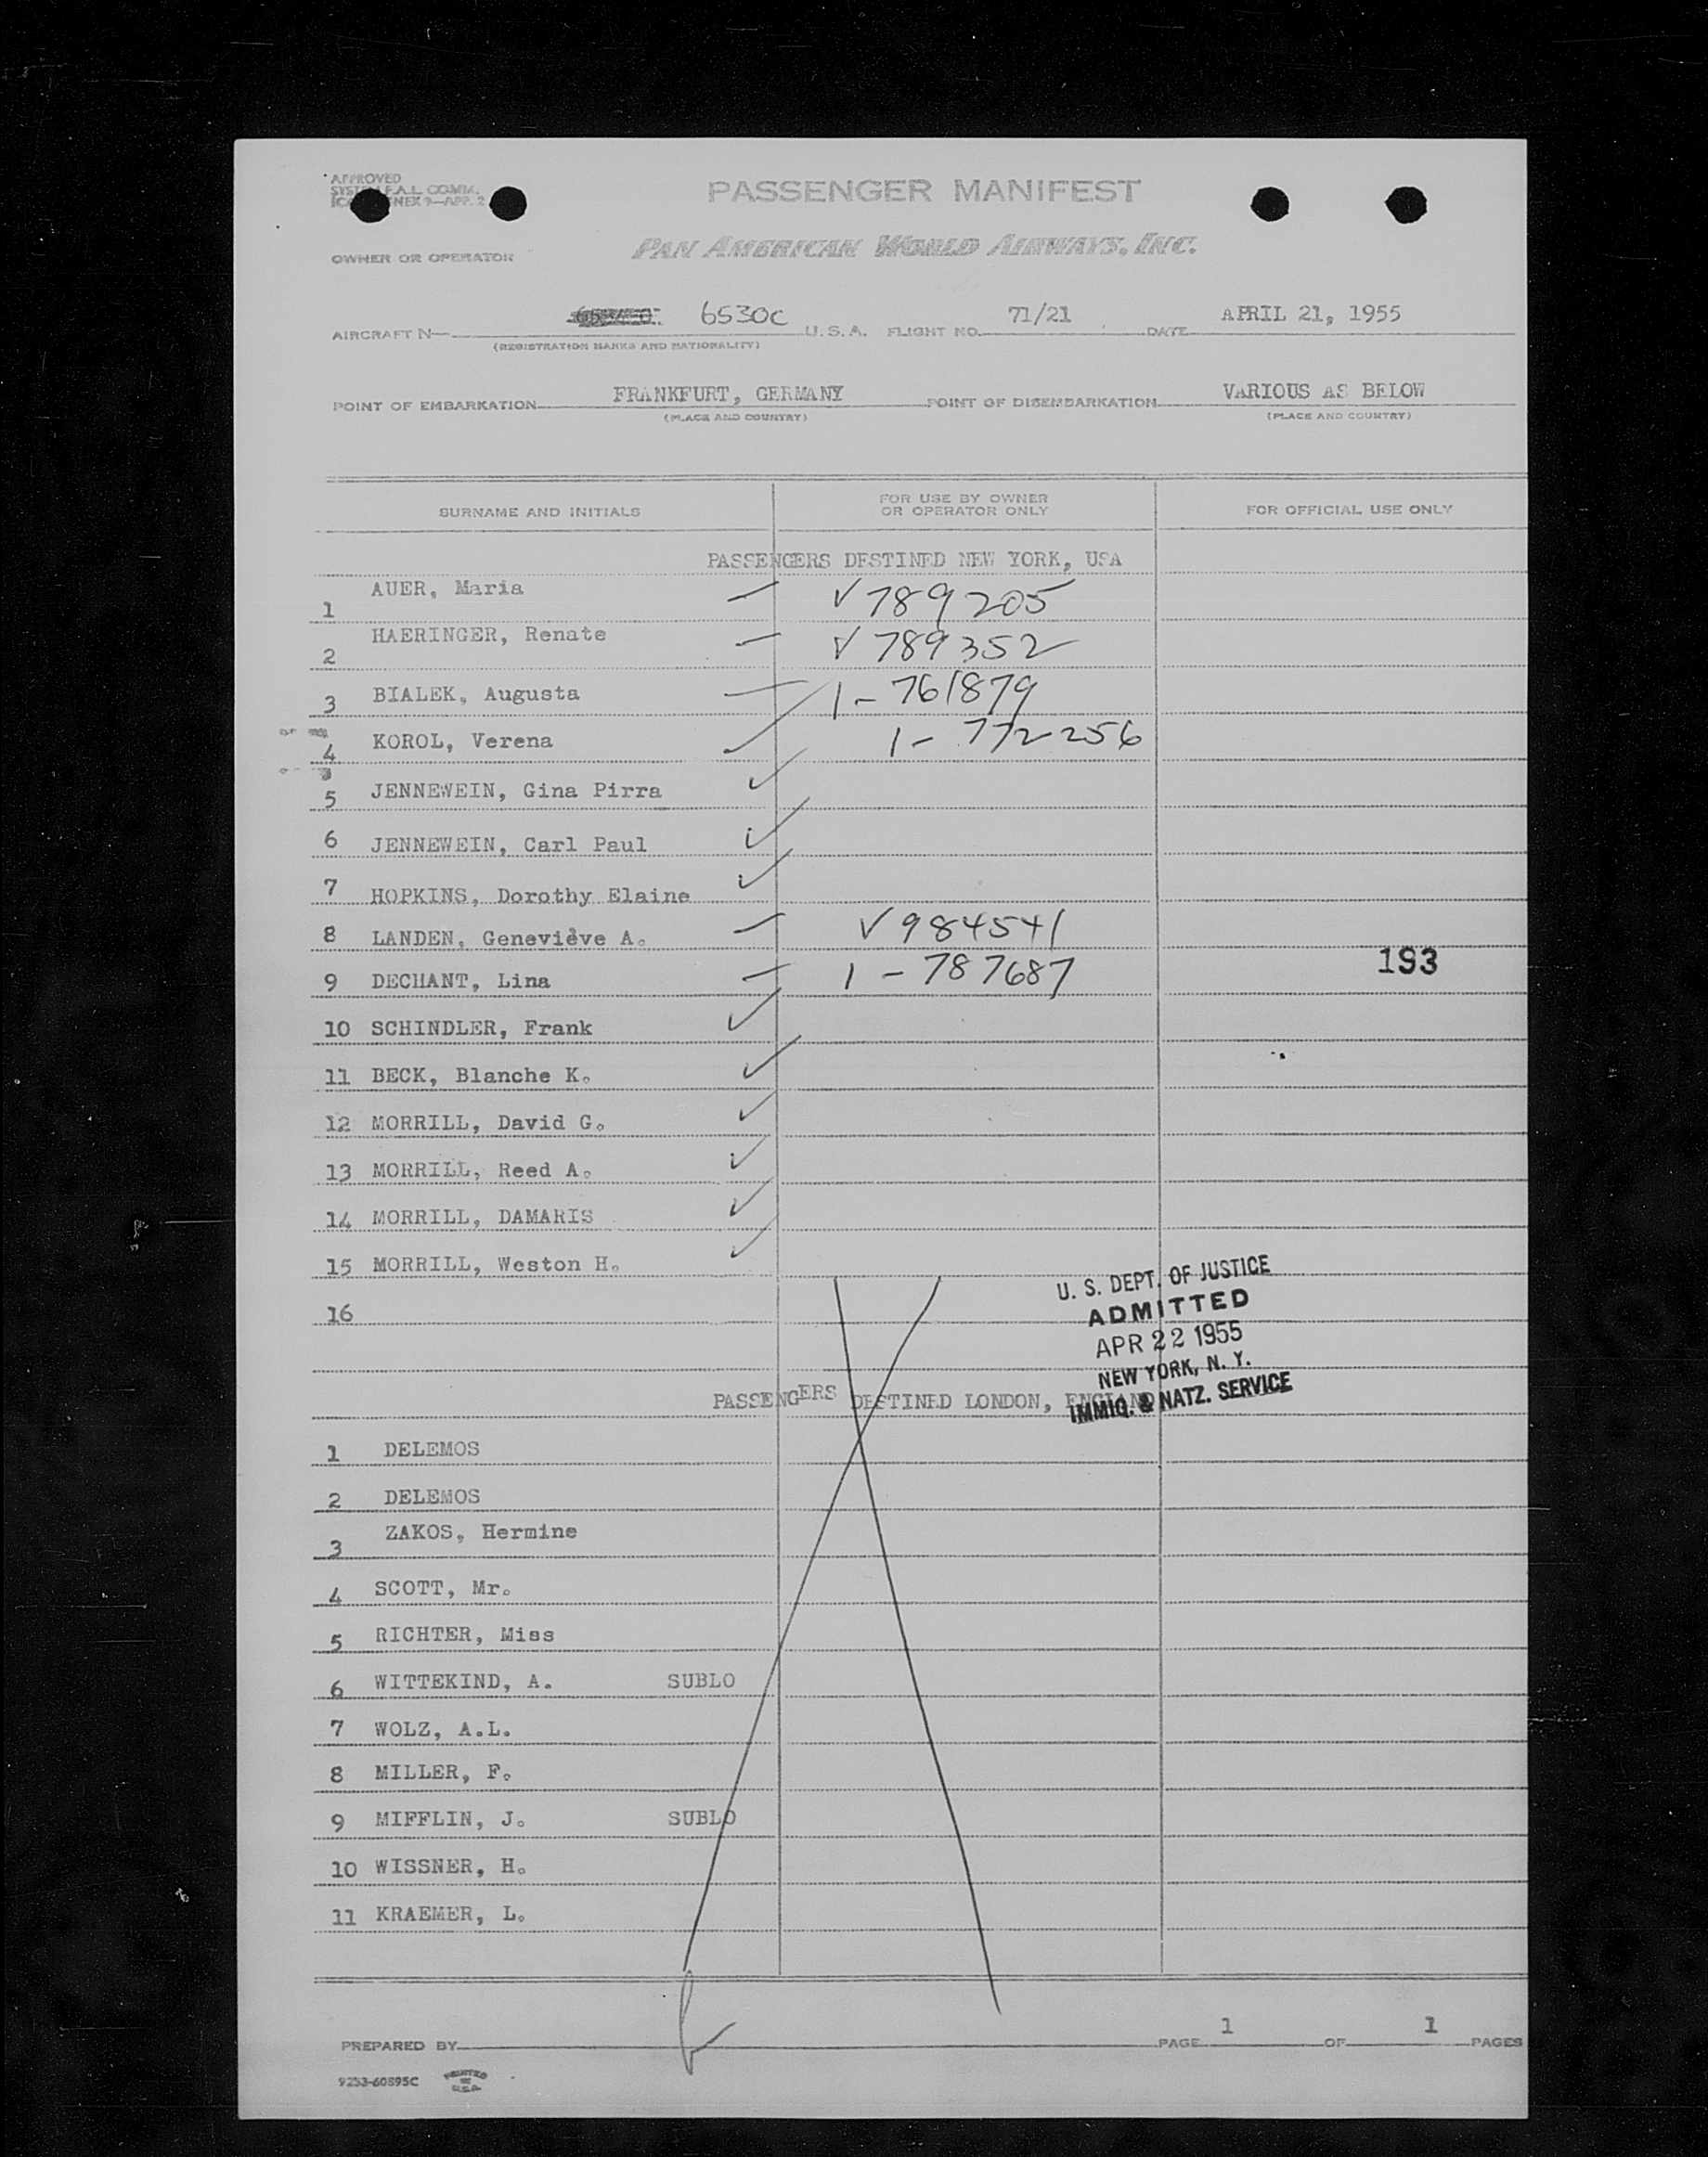 APPROVED
SYSTEM F.A.L. COMM.
NEX 9—APP. 2
PASSENGER MANIFEST
OWNER OR OPERATOR
PAN AMERICAN WORLD AIRWAYS, INC.
AIRCRAFT N— 6530C U.S.A. FLIGHT NO. 71/21 DATE APRIL 21, 1955
(REGISTRATION MARKS AND NATIONALITY)
POINT OF EMBARKATION FRANKFURT, GERMANY POINT OF DISEMBARKATION VARIOUS AS BELOW
(PLACE AND COUNTRY) (PLACE AND COUNTRY)
SURNAME AND INITIALS FOR USE BY OWNER OR OPERATOR ONLY FOR OFFICIAL USE ONLY
PASSENGERS DESTINED NEW YORK, USA
1 AUER, Maria — V 789205
2 HAERINGER, Renate — V 789352
3 BIALEK, Augusta — 1 - 761879
4 KOROL, Verena ✓ 1 - 772256
5 JENNEWEIN, Gina Pirra ✓
6 JENNEWEIN, Carl Paul ✓
7 HOPKINS, Dorothy Elaine ✓
8 LANDEN, Geneviève A. — V 984541
193
9 DECHANT, Lina — 1 - 787687
10 SCHINDLER, Frank ✓
11 BECK, Blanche K. ✓
12 MORRILL, David G. ✓
13 MORRILL, Reed A. ✓
14 MORRILL, DAMARIS ✓
15 MORRILL, Weston H. ✓
16
U. S. DEPT. OF JUSTICE
ADMITTED
APR 22 1955
NEW YORK, N. Y.
IMMIG. & NATZ. SERVICE
PASSENGERS DESTINED LONDON, ENGLAND
1 DELEMOS
2 DELEMOS
3 ZAKOS, Hermine
4 SCOTT, Mr.
5 RICHTER, Miss
6 WITTEKIND, A. SUBLO
7 WOLZ, A.L.
8 MILLER, F.
9 MIFFLIN, J. SUBLO
10 WISSNER, H.
11 KRAEMER, L.
PREPARED BY PAGE 1 OF 1 PAGES
9253-60895C PRINTED IN U.S.A.